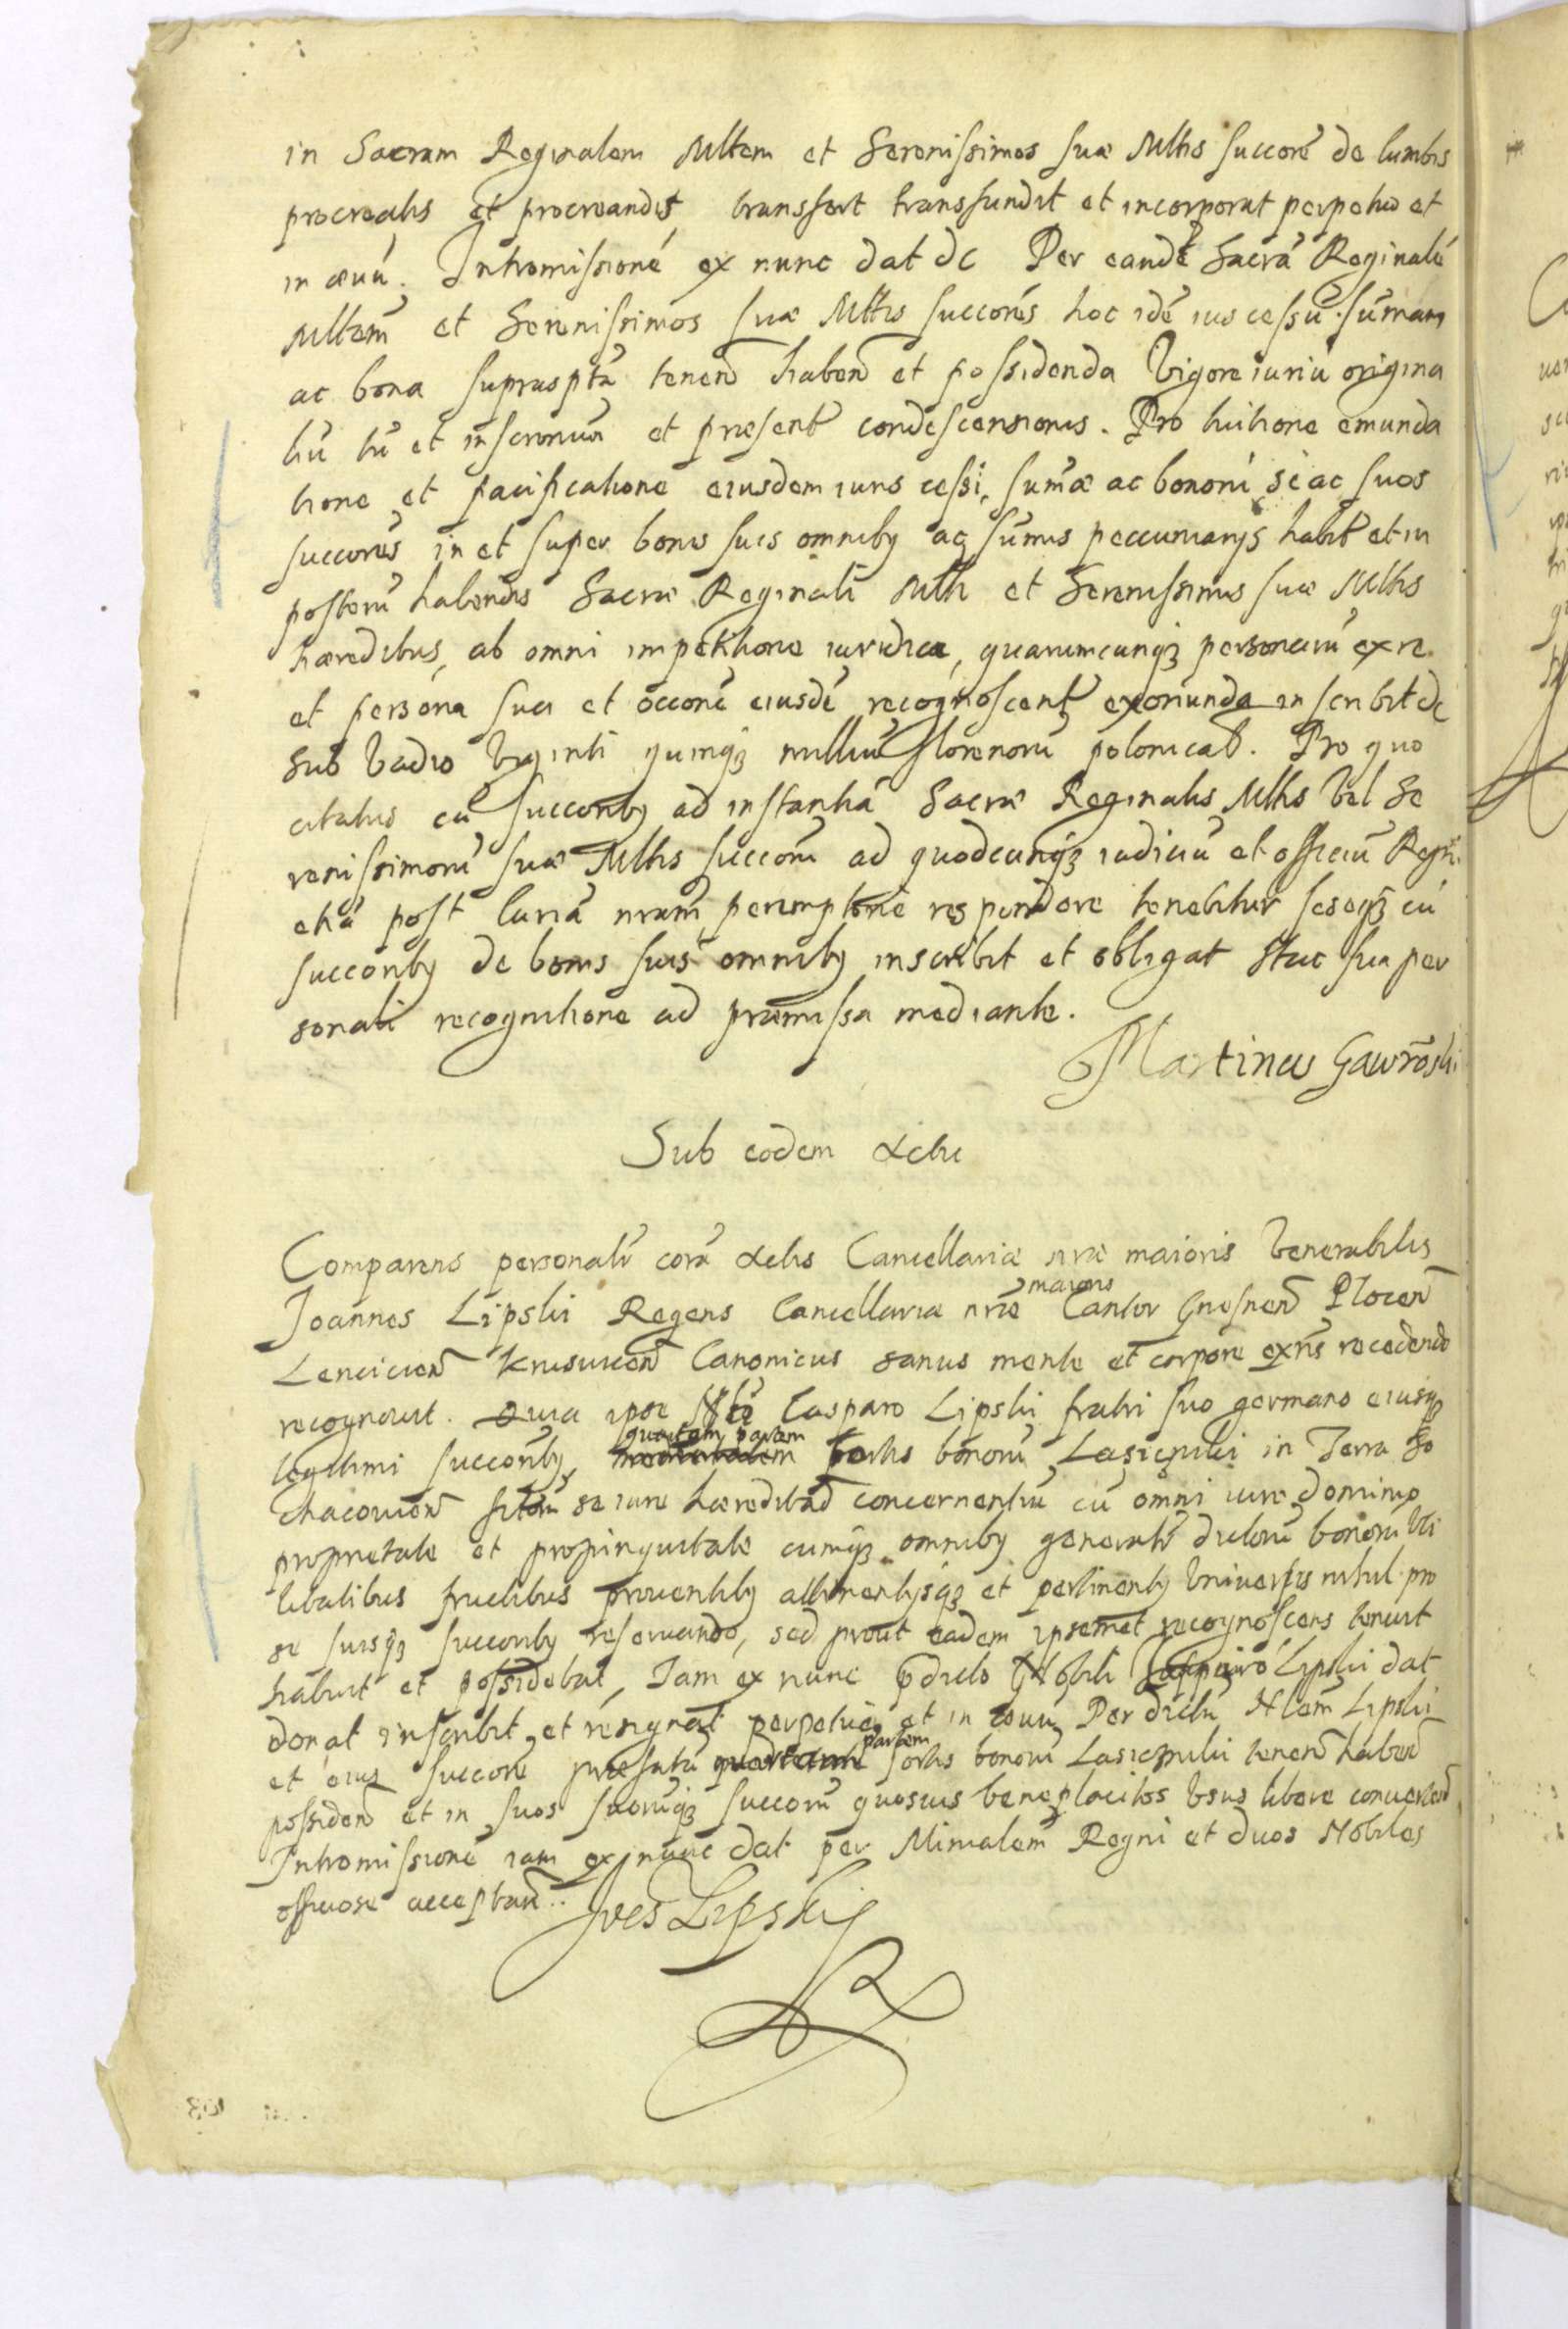 in Sacram Reginalem Mttem et Serenissimos suæ Mttis succorẽ de lumbis
procreatis et procreandis, transfert transfundit et incorporat perpetuo et
in ævũ. Intromissionẽ ex nunc dat dc Per eandẽ Sacrã Reginalẽ
Mttem et Serenissimos suæ Mttis succorẽs hoc idẽ ius cessũ sũmam
ac bona suprasptã tenen̄ haben̄ et possidenda Vigore iuriũ origina
liũ tũ et inscronum et præsent condescensionis. Pro tuitione emunda
tione et pacificatione eiusdem iuris cessi, sum̃æ ac bonorũ sè ac suos
succorẽs in et super bonis suis omniby ac sum̃is peccuniarijs habit et in
posterũ habendis Sacræ Reginali Mtti et Serenissimis suæ Mttis
hæredibus, ab omni impetitione iuridica, quarumcunqȝ personarũ ex re
et persona sua et occorẽ eiusdẽ recognoscent exoriunda inscribit dc
Sub Vadio Viginti quinqȝ milliũ florenorũ polonical. Pro quo
citatus cũ succoriby ad instantiã Sacræ Reginalis Mttis Vel Se
renissimorũ suæ Mttis succorũ ad quodcunqȝ iudiciũ et officiũ Regñi
etiã post Curiã nram̃ peremptorie respondere tenebitur seseqȝ cũ
succoriby de bonis suis omniby inscribit et obligat Stuc sua per
sonali recognitione ad præmissa mediante.
Martinus Gawroński
Sub eodem Actu
Comparens personalr̃ corã Actis Cancellariæ nræ maioris Venerabilis
Joannes Lipski Regens Cancellariæ nræ maioris Cantor Gnesnen̄ Plocen̄
Lencicien̄ Krusvicien̄ Canonicus sanus mente et corpore exñs recedendo
recognovit. Quia ipse Casparo Lipski fratri suo germano eiusqȝ
legitimi succoriby, quartam partem sortis bonorũ Lasiczniki in Terra So
chacovien̄ sitorũ se iure hæreditad concernentiũ cũ omni iure dominio
proprietate et propinquitate cumqȝ omniby generalr̃ dictorũ bonorũ Vti
litatibus fructibus proventiby attinentijsqȝ et pertinentijs Vniversis nihil pro
se suisqȝ succoriby reservando, sed prout eadem ipsemet recognoscens tenuit
habuit et possidebat, Iam ex nunc p̃dicto Nobili Casparo Lipski dat
donat inscribit et resignat perpetuo et in ævũ Per dictũ Nlem̃ Lipski
et eius succorẽ præfatã quartam partem sortis bonorũ Lasiczniki tenen̄ haben̄
possiden̄ et in suos suorũqȝ succorũ quosvis beneplacitos Vsus libere convertend
Intromissionẽ iam ex nunc dat per Mĩnialem̃ Regni et duos Nobiles
officiose acceptan̄..
Joẽs Lipski